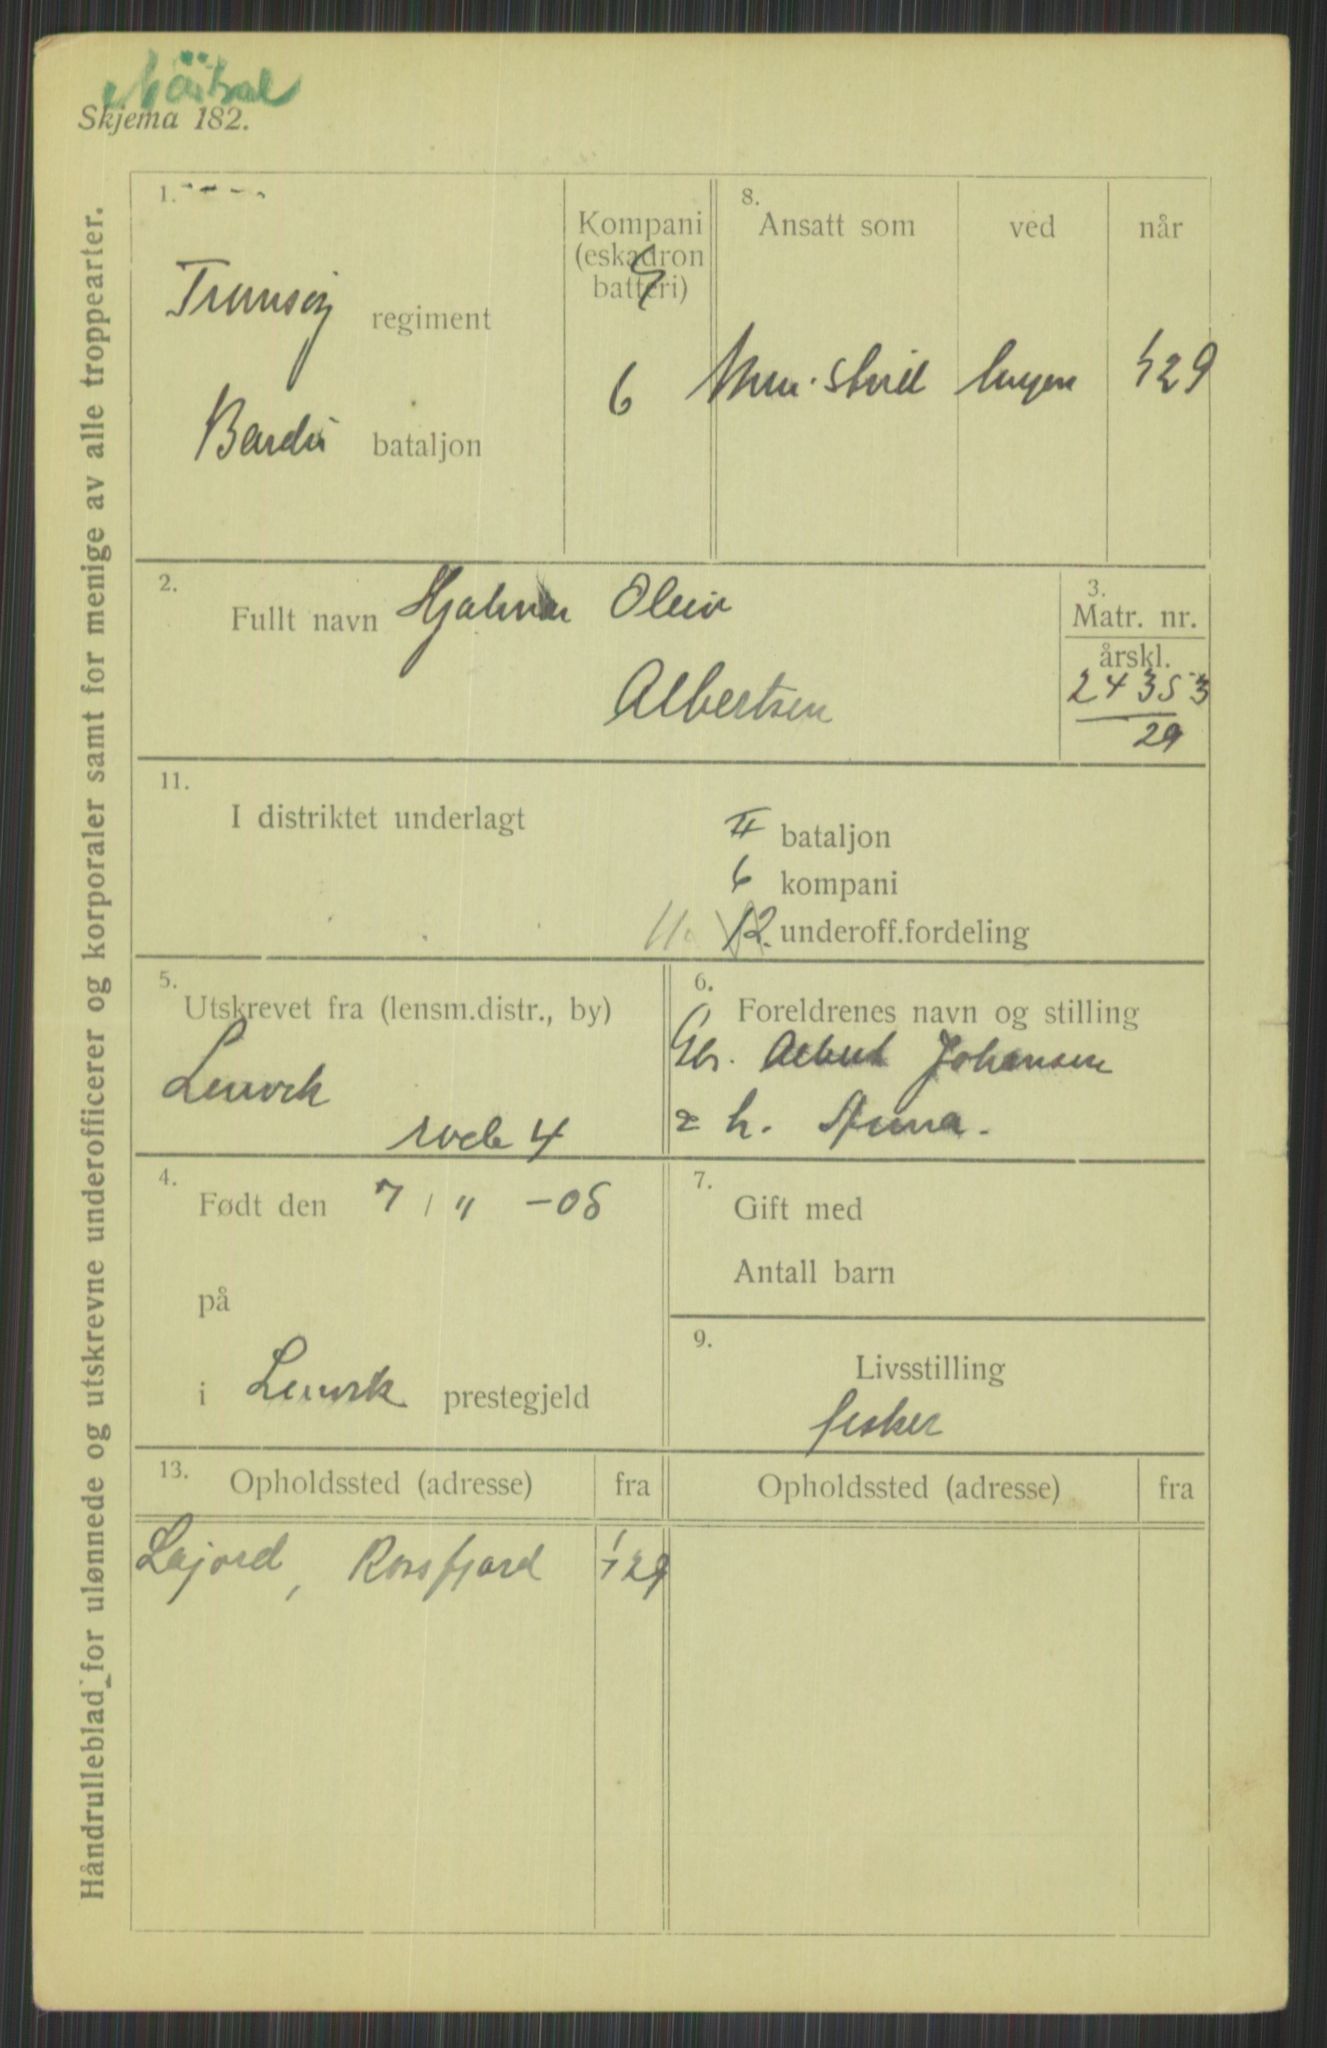 Skjema 182.
Håndrulleblad for ulønnede og utskrevne underofficerer og korporaler samt for menige av alle troppearter.
1.
Kompani
(eskadron
batteri)
8.
Ansatt som
ved
når
regiment
Bardu bataljon
6
29
2.
Fullt navn Hjalmar Oleiv
Albertsen
3.
Matr. nr.
årskl.
24353
29
11.
I distriktet underlagt
II bataljon
6 kompani
11. 12. underoff.fordeling
5.
Utskrevet fra (lensm.distr., by)
Lenvik
rode 4
6.
Foreldrenes navn og stilling
Albert Johansen
h. Anna.
4.
Født den 7 / 11 -08
på
i Lenvik prestegjeld
7.
Gift med
Antall barn
9.
Livsstilling
fisker
13.
Opholdssted (adresse)
fra
Opholdssted (adresse)
fra
Rossfjord
29